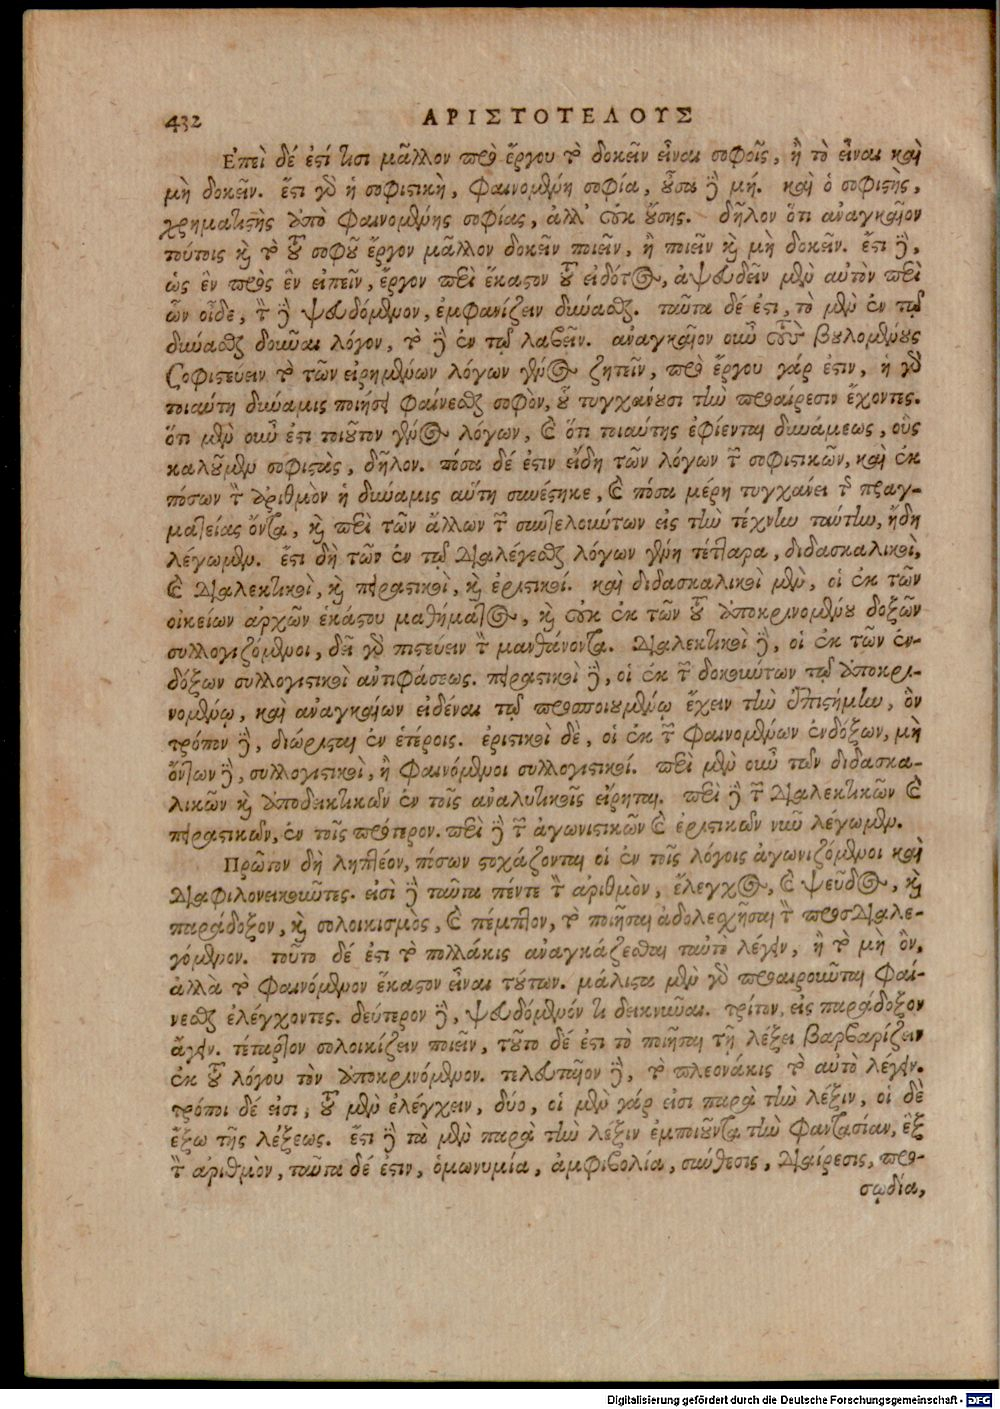 432 ΑΡΙΣΤΟΤΕΛΟΥΣ
Ἐπεὶ δέ ἐστί τισι μᾶλλον πρὸ ἔργου τὸ δοκεῖν εἶναι σοφοῖς, ἢ τὸ εἶναι καὶ
μὴ δοκεῖν. ἔστι γὰρ ἡ σοφιστικὴ, φαινομένη σοφία, οὖσα δὲ μή. καὶ ὁ σοφιστὴς,
χρηματιστὴς ἀπὸ φαινομένης σοφίας, ἀλλ' οὐκ οὔσης. δῆλον ὅτι ἀναγκαῖον
τούτοις καὶ τὸ τοῦ σοφοῦ ἔργον μᾶλλον δοκεῖν ποιεῖν, ἢ ποιεῖν καὶ μὴ δοκεῖν. ἔστι δὲ,
ὡς ἓν πρὸς ἓν εἰπεῖν, ἔργον περὶ ἕκαστον τοῦ εἰδότος, ἀψευδεῖν μὲν αὐτὸν περὶ
ὧν οἶδε, τὸν δὲ ψευδόμενον, ἐμφανίζειν δύνασθαι. ταῦτα δέ ἐστι, τὸ μὲν ἐν τῷ
δύνασθαι δοῦναι λόγον, τὸ δὲ ἐν τῷ λαβεῖν. ἀναγκαῖον οὖν τοὺς βουλομένους
σοφιστεύειν τὸ τῶν εἰρημένων λόγων γένος ζητεῖν, πρὸ ἔργου γάρ ἐστιν, ἡ γὰρ
τοιαύτη δύναμις ποιήσει φαίνεσθαι σοφὸν, οὗ τυγχάνουσι τὴν προαίρεσιν ἔχοντες.
ὅτι μὲν οὖν ἐστι τοιοῦτον γένος λόγων, καὶ ὅτι τοιαύτης ἐφίενται δυνάμεως, οὓς
καλοῦμεν σοφιστὰς, δῆλον. πόσα δέ ἐστιν εἴδη τῶν λόγων τῶν σοφιστικῶν, καὶ ἐκ
πόσων τὸν ἀριθμὸν ἡ δύναμις αὕτη συνέστηκε, καὶ πόσα μέρη τυγχάνει τῆς πραγ-
ματείας ὄντα, καὶ περὶ τῶν ἄλλων τῶν συντελούντων εἰς τὴν τέχνην ταύτην, ἤδη
λέγωμεν. ἔστι δὴ τῶν ἐν τῷ διαλέγεσθαι λόγων γένη τέτταρα, διδασκαλικοὶ,
καὶ διαλεκτικοὶ, καὶ πειραστικοὶ, καὶ ἐριστικοί. καὶ διδασκαλικοὶ μὲν, οἱ ἐκ τῶν
οἰκείων ἀρχῶν ἑκάστου μαθήματος, καὶ οὐκ ἐκ τῶν τοῦ ἀποκρινομένου δοξῶν
συλλογιζόμενοι, δεῖ γὰρ πιστεύειν τὸν μανθάνοντα. διαλεκτικοὶ δὲ, οἱ ἐκ τῶν ἐν-
δόξων συλλογιστικοὶ ἀντιφάσεως. πειραστικοὶ δὲ, οἱ ἐκ τῶν δοκούντων τῷ ἀποκρι-
νομένῳ, καὶ ἀναγκαίων εἰδέναι τῷ προσποιουμένῳ ἔχειν τὴν ἐπιστήμην, ὃν
τρόπον δὲ, διώρισται ἐν ἑτέροις. ἐριστικοὶ δὲ, οἱ ἐκ τῶν φαινομένων ἐνδόξων, μὴ
ὄντων δὲ, συλλογιστικοὶ, ἢ φαινόμενοι συλλογιστικοί. περὶ μὲν οὖν τῶν διδασκα-
λικῶν καὶ ἀποδεικτικῶν ἐν τοῖς ἀναλυτικοῖς εἴρηται. περὶ δὲ τῶν διαλεκτικῶν καὶ
πειραστικῶν, ἐν τοῖς πρότερον. περὶ δὲ τῶν ἀγωνιστικῶν καὶ ἐριστικῶν νῦν λέγωμεν.
Πρῶτον δὴ ληπτέον, πόσων στοχάζονται οἱ ἐν τοῖς λόγοις ἀγωνιζόμενοι καὶ
διαφιλονεικοῦντες. εἰσὶ δὲ ταῦτα πέντε τὸν ἀριθμὸν, ἔλεγχος, καὶ ψεῦδος, καὶ
παράδοξον, καὶ σολοικισμὸς, καὶ πέμπτον, τὸ ποιῆσαι ἀδολεσχῆσαι τὸν προσδιαλε-
γόμενον. τοῦτο δέ ἐστι τὸ πολλάκις ἀναγκάζεσθαι ταὐτὸ λέγειν, ἢ τὸ μὴ ὂν,
ἀλλὰ τὸ φαινόμενον ἕκαστον εἶναι τούτων. μάλιστα μὲν γὰρ προαιροῦνται φαί-
νεσθαι ἐλέγχοντες. δεύτερον δὲ, ψευδόμενόν τι δεικνῦναι. τρίτον, εἰς παράδοξον
ἄγειν. τέταρτον σολοικίζειν ποιεῖν, τοῦτο δέ ἐστι τὸ ποιῆσαι τῇ λέξει βαρβαρίζειν
ἐκ τοῦ λόγου τὸν ἀποκρινόμενον. τελευταῖον δὲ, τὸ πλεονάκις τὸ αὐτὸ λέγειν.
τρόποι δέ εἰσι, τοῦ μὲν ἐλέγχειν, δύο, οἱ μὲν γάρ εἰσι παρὰ τὴν λέξιν, οἱ δὲ
ἔξω τῆς λέξεως. ἔστι δὲ τὰ μὲν παρὰ τὴν λέξιν ἐμποιοῦντα τὴν φαντασίαν, ἓξ
τὸν ἀριθμὸν, ταῦτα δέ ἐστιν, ὁμωνυμία, ἀμφιβολία, σύνθεσις, διαίρεσις, προ-
σῳδία,
Digitalisierung gefördert durch die Deutsche Forschungsgemeinschaft - DFG